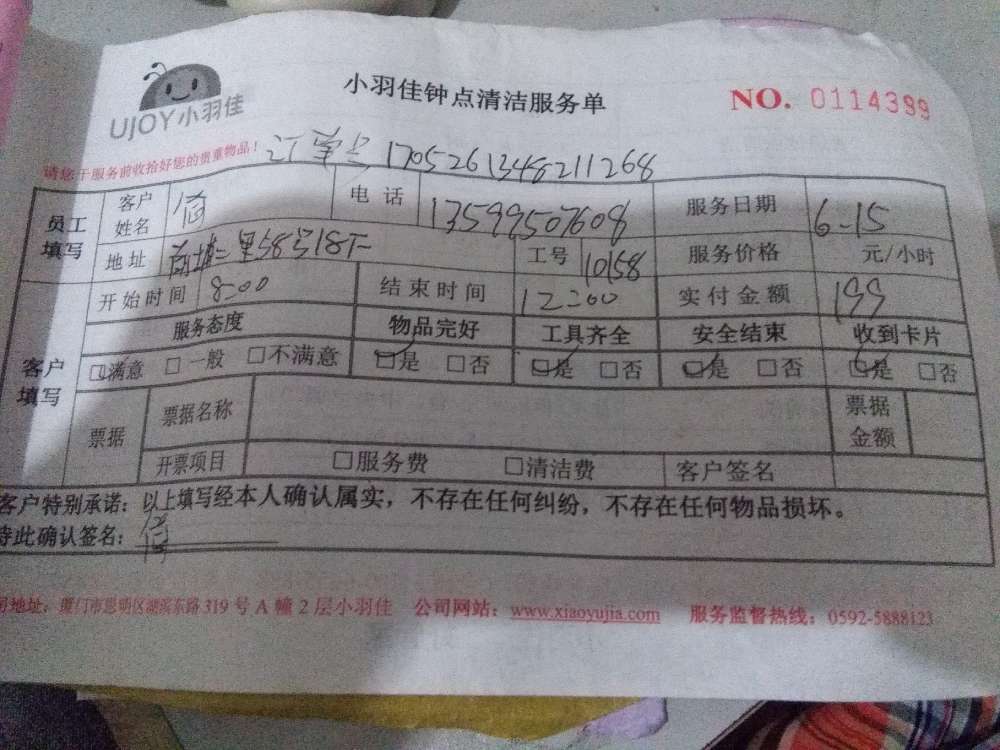 UJOY小羽佳
小羽佳钟点清洁服务单
NO. 0114399
请您于服务前收拾好您的贵重物品!
订单号 1705261348211268
员工填写 客户姓名 电话 13599507608 服务日期 6-15
地址 二里58号 工号 10158 服务价格 元/小时
开始时间 8=00 结束时间 12=00 实付金额 199
客户填写 服务态度 物品完好 工具齐全 安全结束 收到卡片
☑满意 □一般 □不满意 ☑是 □否 ☑是 □否 ☑是 □否 ☑是 □否
票据 票据名称 票据金额
开票项目 □服务费 □清洁费 客户签名
客户特别承诺：以上填写经本人确认属实，不存在任何纠纷，不存在任何物品损坏。
特此确认签名：
司地址：厦门市思明区湖滨东路319号A幢2层小羽佳 公司网站：www.xiaoyujia.com 服务监督热线：0592-5888123